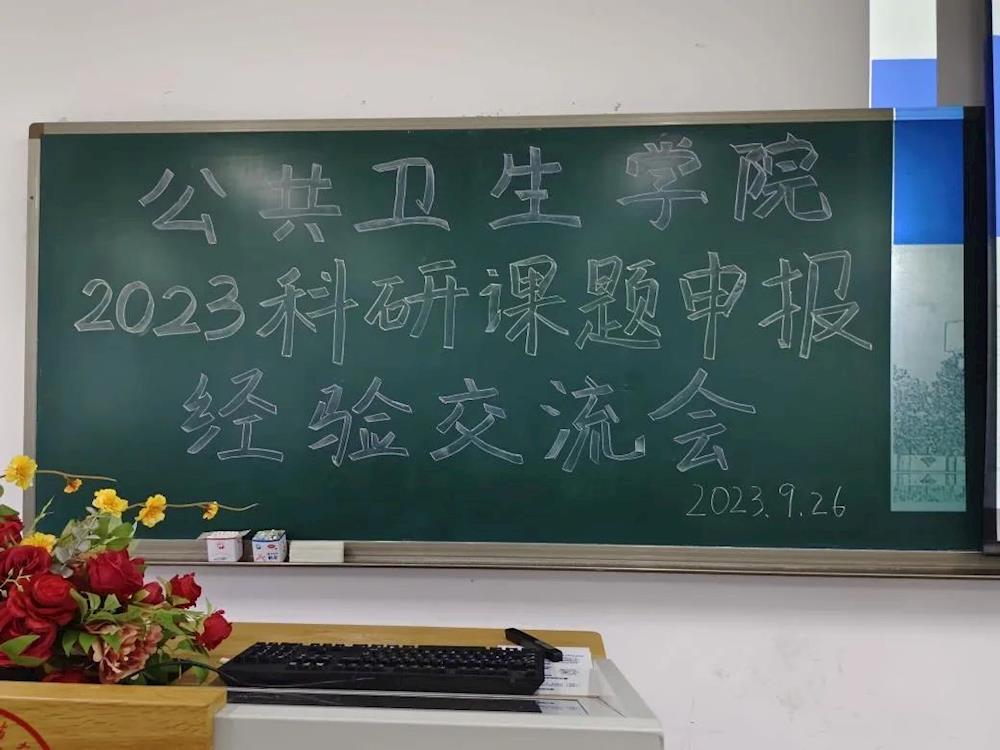 公共卫生学院
2023科研课题申报
经验交流会
2023.9.26